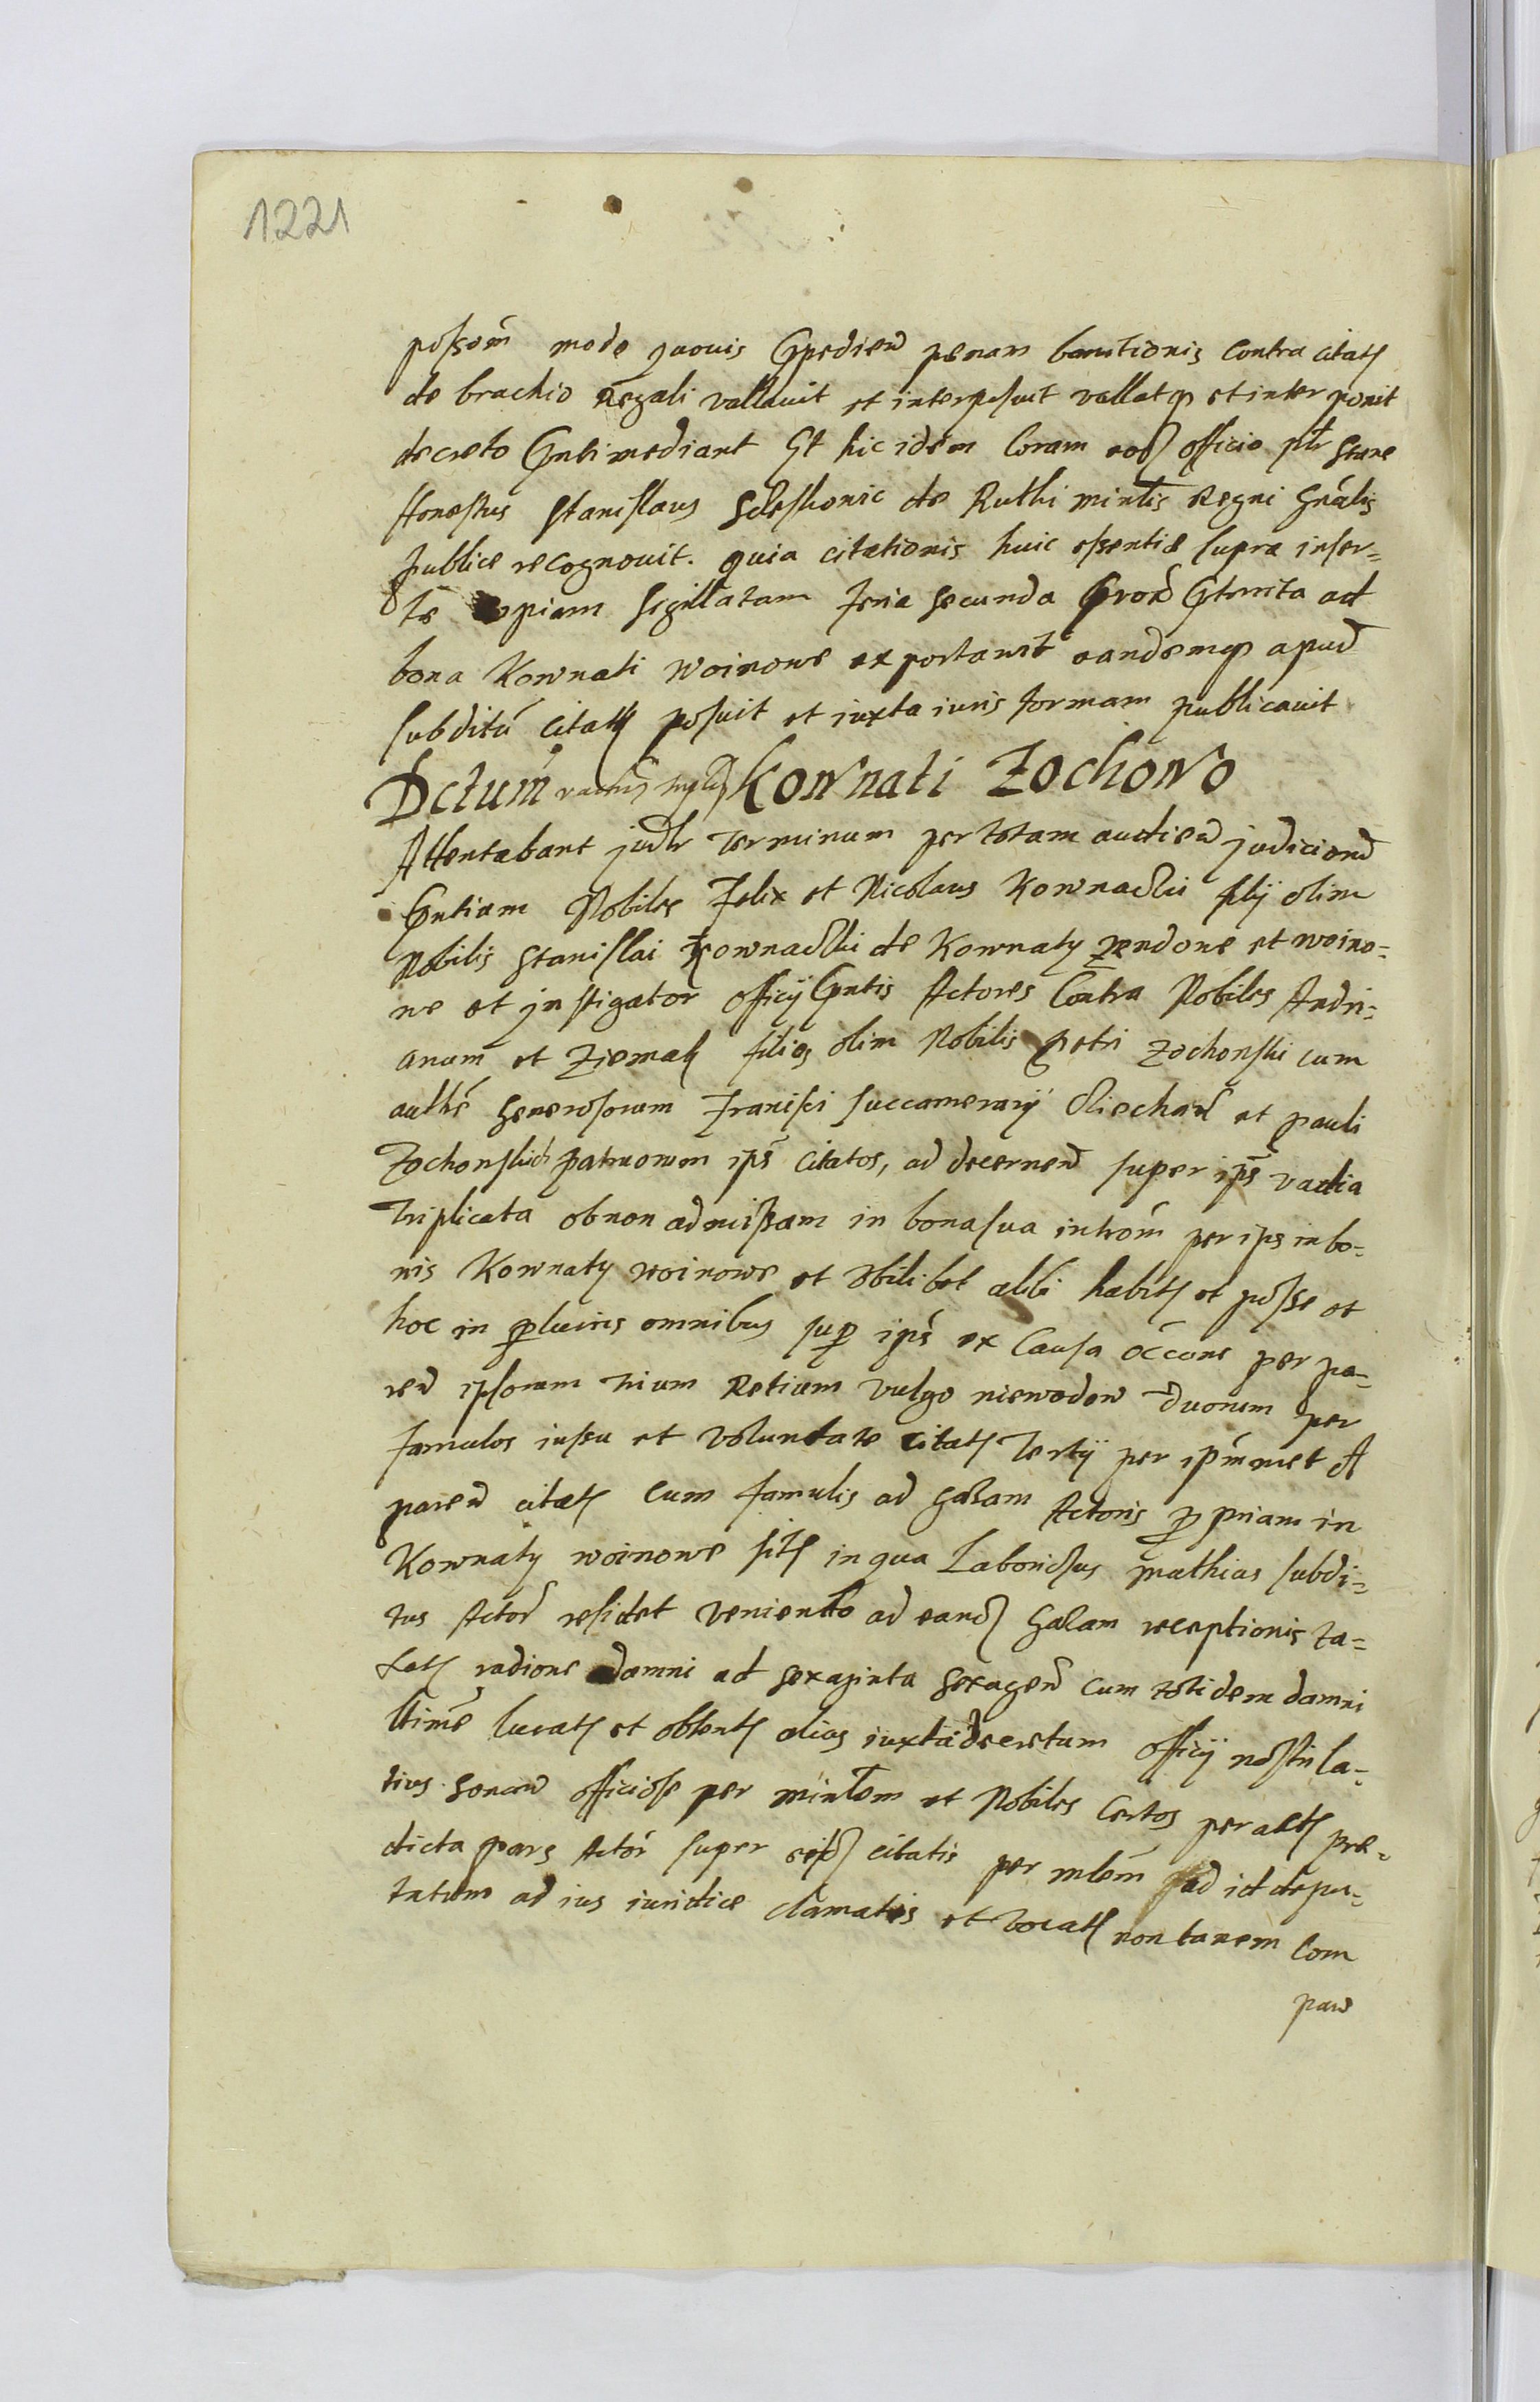 1221
possom̃ mode quovis Expedien̄ penam banitionis Contra citat̄
de brachio Regali vallavit et interposuit vallatq̃ et inter ponit
decreto Pn̄ti mediant Et hic idem Coram eod̄ officio pl̄r stans
Honestus Stanislaus de Ruthi min̄tis Regni Gn̄alis
publice recognovit. quia citationis huic essentiæ supra inser=
te copiam sigillatam feria secunda prox̄ pt̄erita ad
bona Kownati Woinowe exportavit eandemq̃ apud
subditū citat̄ posuit et iuxta iuris formam publicavit
Dctum̃ Kownati Zochowo
Attentabant jud̄r Terminum per totam audien̄ judiciorū
pn̄tiam Nobiles Felix et Nicolaus Kownaczki filij olim
Nobilis Stanislai Kownaczki de Kownaty et woino=
we et jnstigator officij pn̄tis Actores Contra Nobiles Andri=
anum et Ziemak filios olim Nobilis Petri Zochowski cum
auth̄e Generosorum Francisci succamerarij Ciechan̄ et Pauli
Zochowskich patruorum ips̄ citatos, ad decernen̄ super ips̄ vadia
Triplicata ob non admissam in bona sua introm̃ per ips in bo=
nis Kownaty woinowe et ubilibet alibi habit̄ et posse et
hoc in pluuris omnibus sup ips̄ ex Causa occōne per pa=
ren̄ ipsorum trium Retium vulgo niewodow duorum per
famulos iussu et voluntate citat̄ Tertij per ipm̄met A
paren̄ citat̄ cum famulis ad Actoris p priam in
Kownaty woinowe sit̄ in qua Laboriosus Mathias subdi=
tus Actor̄ residet veniendo ad eand̄ receptionis ta=
xat̄ ratione damni ad sexaginta sexagen̄ cum totidem damni
lucrat̄ et obtent̄ alias iuxta decretum officij nostri la=
tius sonan̄ officiose per min̄lem et Nobiles Certos peract̄ pre=
dicta pars Actor̄ super eisd̄ citatis per mlem̄ ad id depu=
tatum ad ius iuridice clamatis et vocat̄ non tamem Com
pare